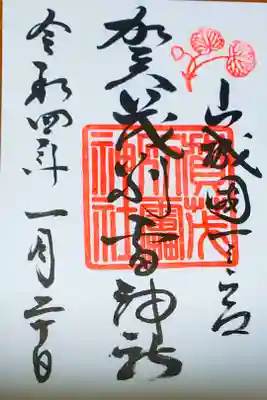 山城國一之宮
賀茂別雷神社
賀茂別雷神社
令和四年一月二十日